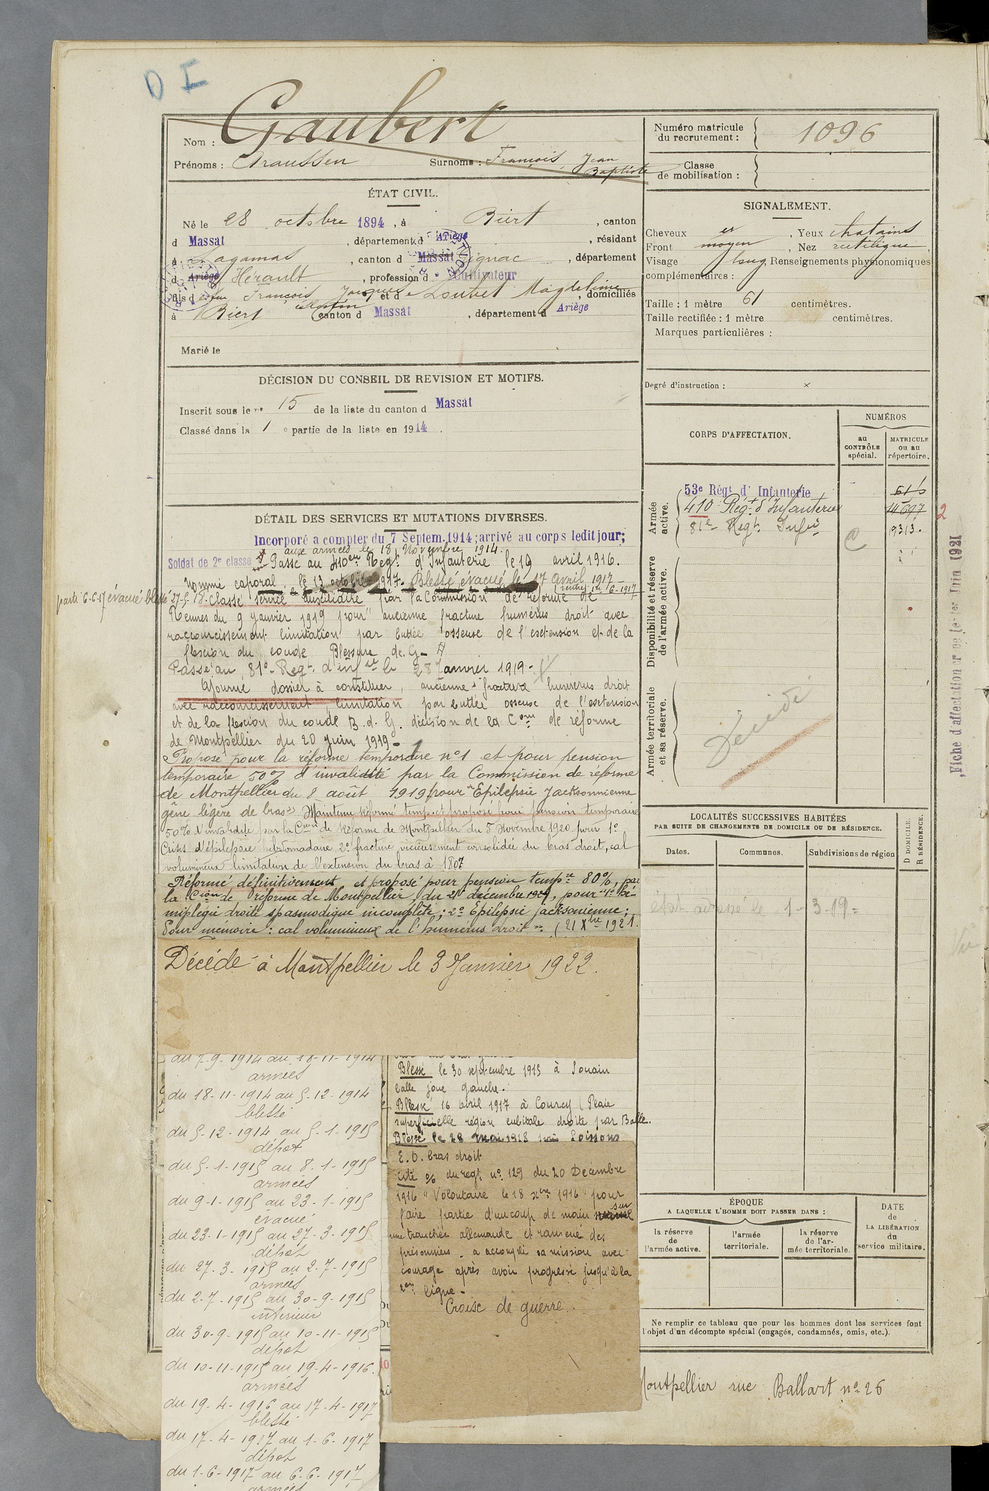 D I
Gaubert
Nom :
Prénoms :
Surnoms : François Jean
Baptiste
Numéro matricule
du recrutement : 1096
Classe
de mobilisation :
ÉTAT CIVIL.
Né le 28 octobre 1894, à Biert, canton
d Massat, département d Ariège, résidant
à, canton d Massat, département
d Ariège Hérault, profession d Cultivateur
fils d François et d Loubet Magdeleine, domiciliés
à Biert canton d Massat, département d Ariège
Marié le
SIGNALEMENT.
Cheveux, Yeux chatains
Front moyen, Nez rectiligne
Visage long Renseignements physionomiques
complémentaires :
Taille : 1 mètre 61 centimètres.
Taille rectifiée : 1 mètre centimètres.
Marques particulières :
Degré d'instruction : x
DÉCISION DU CONSEIL DE REVISION ET MOTIFS.
Inscrit sous le n° 15 de la liste du canton d Massat
Classé dans la 1 e partie de la liste en 1914.
CORPS D'AFFECTATION.
NUMÉROS
au
CONTRÔLE
spécial.
MATRICULE
OU AU
répertoire.
Armée
active.
53e Régt d'Infanterie
410 Régt d'Infanterie
81e Régt Infie
9313
2
Disponibilité et réserve
de l'armée active.
Armée territoriale
et sa réserve.
Décédé
Fiche d'affectation
Juin 1921
DÉTAIL DES SERVICES ET MUTATIONS DIVERSES.
Incorporé a compter du 7 Septem. 1914; arrivé au corps ledit jour;
Soldat de 2e classe
aux armées le 18 Novembre 1914.
Passé au 410e Regt d'Infanterie le 19 avril 1916.
Nommé caporal le 13 octobre 1917. Blessé évacué le 17 avril 1917
parti 6-6-17 évacué blessé
Classé service auxiliaire par la Commission de réforme de
Rennes du 9 janvier 1919 pour ancienne fracture humérus droit avec
raccourcissement limitation par butée osseuse de l'extension et de la
flexion du coude Blessure de G.
Passé au 81e Regt d'infie le 28 Janvier 1919.
Ajourné dossier à constituer, ancienne fracture humérus droit
avec raccourcissement, limitation par butée osseuse de l'extension
et de la flexion du coude B. d. G. décision de la Con de réforme
de Montpellier du 20 juin 1919 -
Proposé pour la réforme temporaire n°1 et pour pension
temporaire 50% d'invalidité par la Commission de réforme
de Montpellier du 8 août 1919 pour "Epilepsie Jacksonienne
gêne légère de bras" Maintenu réformé tempre et proposé pour pension temporaire
50% d'invalidité par la Con de Réforme de Montpellier du 5 Novembre 1920 pour 1°
Crises d'épilepsie hebdomadaire 2° fracture vicieusement consolidée du bras droit, cal
volumineux limitation de l'extension du bras à
Réformé définitivement et proposé pour pension tempre 80%, par
la Cion de Réforme de Montpellier du 21 décembre 1921, pour 1° Hé-
miplégie droite spasmodique incomplète; 2° Epilepsie jacksonienne;
Pour mémoire : cal volumineux de l'humérus droit. (21 Xbre 1921.
Décédé à Montpellier le 3 Janvier 1922.
LOCALITÉS SUCCESSIVES HABITÉES
PAR SUITE DE CHANGEMENTS DE DOMICILE OU DE RÉSIDENCE.
Dates.
Communes.
Subdivisions de région
D DOMICILE.
R RÉSIDENCE.
1-3-19
du 7-9-1914 au 18-11-1914
armées
du 18-11-1914 au 5-12-1914
blessé
du 5-12-1914 au 5-1-1915
dépôt
du 5-1-1915 au 8-1-1915
armées
du 9-1-1915 au 23-1-1915
évacué
du 23-1-1915 au 27-3-1915
dépôt
du 27-3-1915 au 2-7-1915
armées
du 2-7-1915 au 30-9-1915
intérieur
du 30-9-1915 au 10-11-1915
dépôt
du 10-11-1915 au 19-4-1916.
armées
du 19-4-1916 au 17-4-1917
blessé
du 17-4-1917 au 1-6-1917
dépôt
du 1-6-1917 au 6-6-1917
armées
Blessé le 30 septembre 1915 à Souain
balle joue gauche.
Blessé 16 avril 1917 à Courcy (Plaie
superficielle région cubitale droite par Balle.
Blessé le 28 mai 1918 près Soissons
E.O. bras droit
Cité O/ du regt n° 129 du 20 Décembre
1916 "Volontaire le 18 Xbre 1916 pour
faire partie d'un coup de main sur
une tranchée allemande et ramené des
prisonniers. a accompli sa mission avec
courage après avoir progressé jusqu'à la
ligne -
Croix de guerre.
ÉPOQUE
A LAQUELLE L'HOMME DOIT PASSER DANS :
la réserve
de
l'armée active.
l'armée
territoriale.
la réserve
de l'ar-
mée territoriale.
DATE
de
LA LIBÉRATION
du
service militaire.
Ne remplir ce tableau que pour les hommes dont les services font
l'objet d'un décompte spécial (engagés, condamnés, omis, etc.).
Montpellier rue Ballart n° 26